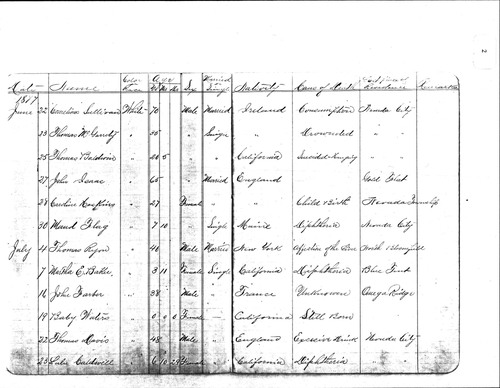 2
Date Name Color Race Age Sex Married Single Nativity Cause of Death Last Place of Residence Remarks
Y M D
June 22 Cornelius Sullivan White 70 Male Married Ireland Consumption Nevada City
23 Thomas McGarrity " 55 " Single " Drowned "
25 Thomas Baldwin " 20 5 " " California "
27 John Isaac " 65 " Married England Gold Flat
28 Caroline Hoskins " 27 Female " " Child Birth Nevada Township
30 Maud Flag " 7 10 " Single Maine Diphtheria Nevada City
July 4 Thomas Ryan " 40 Male Married New York Affection of the North Bloomfield
7 Martha E. Baker " 3 11 Female Single California Diphtheria Blue Tent
16 John Farber " 38 Male " France Unknown Omega Ridge
19 Baby Waters " 0 0 0 Female California Still Born
22 Thomas Davis " 48 Male " England Excessive Drink Nevada City
23 Caldwell " 6 10 Female " California Diphtheria "